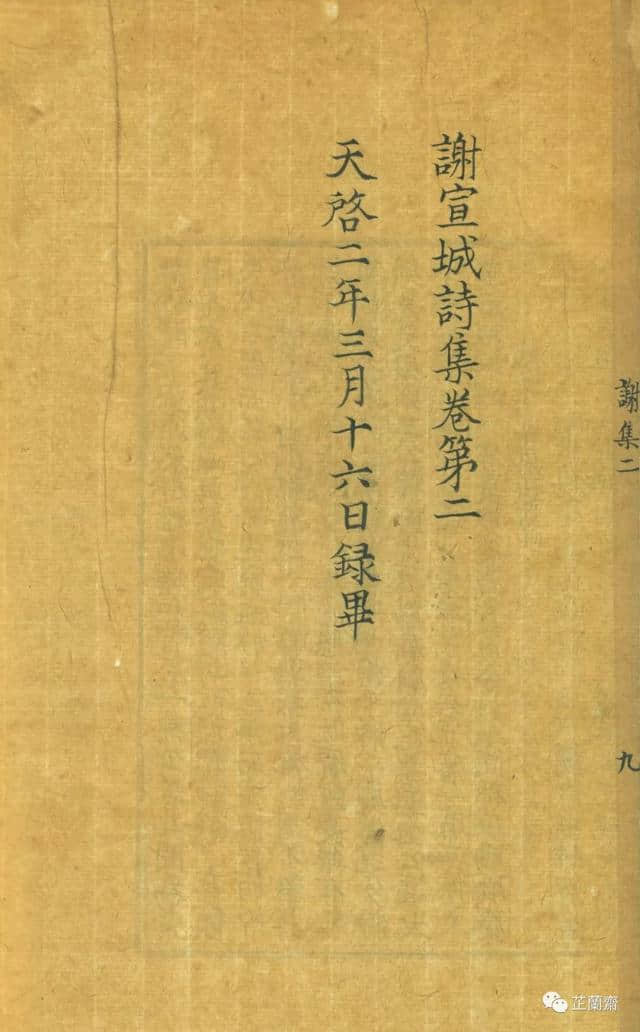 謝集二
九
謝宣城詩集卷第二
天啓二年三月十六日録畢
芷蘭齋